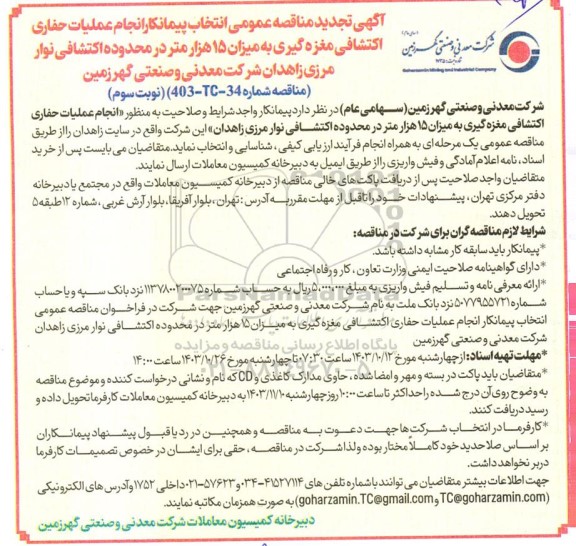 آگهی تجدید مناقصه عمومی انتخاب پیمانکار انجام عملیات حفاری
اکتشافی مغزه گیری به میزان ۱۵ هزار متر در محدوده اکتشافی نوار
مرزی زاهدان شرکت معدنی و صنعتی گهر زمین
(مناقصه شماره 34-TC-403) (نوبت سوم)
شرکت معدنی و صنعتی گهرزمین
Goharzamin Mining and Industrial Company
شرکت معدنی و صنعتی گهرزمین (سهامی عام) در نظر دارد پیمانکار واجد شرایط و صلاحیت به منظور «انجام عملیات حفاری
اکتشافی مغزه گیری به میزان ۱۵ هزار متر در محدوده اکتشافی نوار مرزی زاهدان» این شرکت واقع در سایت زاهدان را از طریق
مناقصه عمومی یک مرحله ای به همراه انجام فرآیند ارزیابی کیفی، شناسایی و انتخاب نماید. متقاضیان می بایست پس از خرید
اسناد، نامه اعلام آمادگی و فیش واریزی را از طریق ایمیل به دبیرخانه کمیسیون معاملات ارسال نمایند.
متقاضیان واجد صلاحیت پس از دریافت پاکت های خالی مناقصه از دبیرخانه کمیسیون معاملات واقع در مجتمع یا دبیرخانه
دفتر مرکزی تهران، پیشنهادات خود را تا قبل از مهلت مقرر به آدرس: تهران، بلوار آفریقا، بلوار آرش غربی، شماره ۱۲ طبقه ۵
تحویل دهند.
شرایط لازم مناقصه گران برای شرکت در مناقصه:
*پیمانکار باید سابقه کار مشابه داشته باشد.
*دارای گواهینامه صلاحیت ایمنی وزارت تعاون، کار و رفاه اجتماعی
*ارائه معرفی نامه و تسلیم فیش واریزی به مبلغ ۵,۰۰۰,۰۰۰ ریال به حساب شماره ۱۱۳۷۸۰۰۲۰۰۰۷۵ نزد بانک سپه و یا حساب
شماره ۵۰۷۷۹۵۵۷۳۱ نزد بانک ملت به نام شرکت معدنی و صنعتی گهرزمین جهت شرکت در فراخوان مناقصه عمومی
انتخاب پیمانکار انجام عملیات حفاری اکتشافی مغزه گیری به میزان ۱۵ هزار متر در محدوده اکتشافی نوار مرزی زاهدان
شرکت معدنی و صنعتی گهرزمین
*مهلت تهیه اسناد: از چهارشنبه مورخ ۱۴۰۳/۱۰/۱۲ ساعت ۰۷:۳۰ تا چهارشنبه مورخ ۱۴۰۳/۱۰/۲۶ ساعت ۱۴:۰۰
*متقاضیان باید پاکت در بسته و مهر و امضا شده، حاوی مدارک کاغذی و CD که نام و نشانی درخواست کننده و موضوع مناقصه
به وضوح روی آن درج شده را حداکثر تا ساعت ۱۰:۰۰ روز چهارشنبه ۱۴۰۳/۱۱/۱۰ به دبیرخانه کمیسیون معاملات کارفرما تحویل داده و
رسید دریافت کنند.
*کارفرما در انتخاب شرکت ها جهت دعوت به مناقصه و همچنین در رد یا قبول پیشنهاد پیمانکاران
بر اساس صلاحدید خود کاملاً مختار بوده و لذا شرکت در مناقصه، حقی برای ایشان در خصوص تصمیمات کارفرما
در بر نخواهد داشت.
جهت اطلاعات بیشتر متقاضیان می توانند با شماره تلفن های ۴۱۵۲۷۱۱۴-۰۳۴ و ۵۷۶۲۳-۰۲۱ داخلی ۱۷۵۲ و آدرس های الکترونیکی
(TC@goharzamin.com و goharzamin.TC@gmail.com) به صورت همزمان مکاتبه نمایند.
دبیرخانه کمیسیون معاملات شرکت معدنی و صنعتی گهرزمین